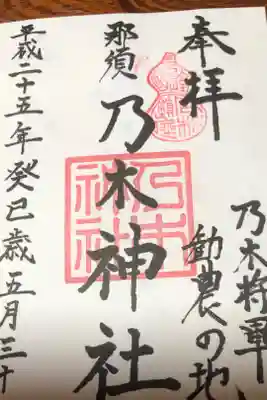 奉拝
乃木将軍
勧農の地
那須
乃木神社
乃木神社
平成二十五年癸巳歳五月三十